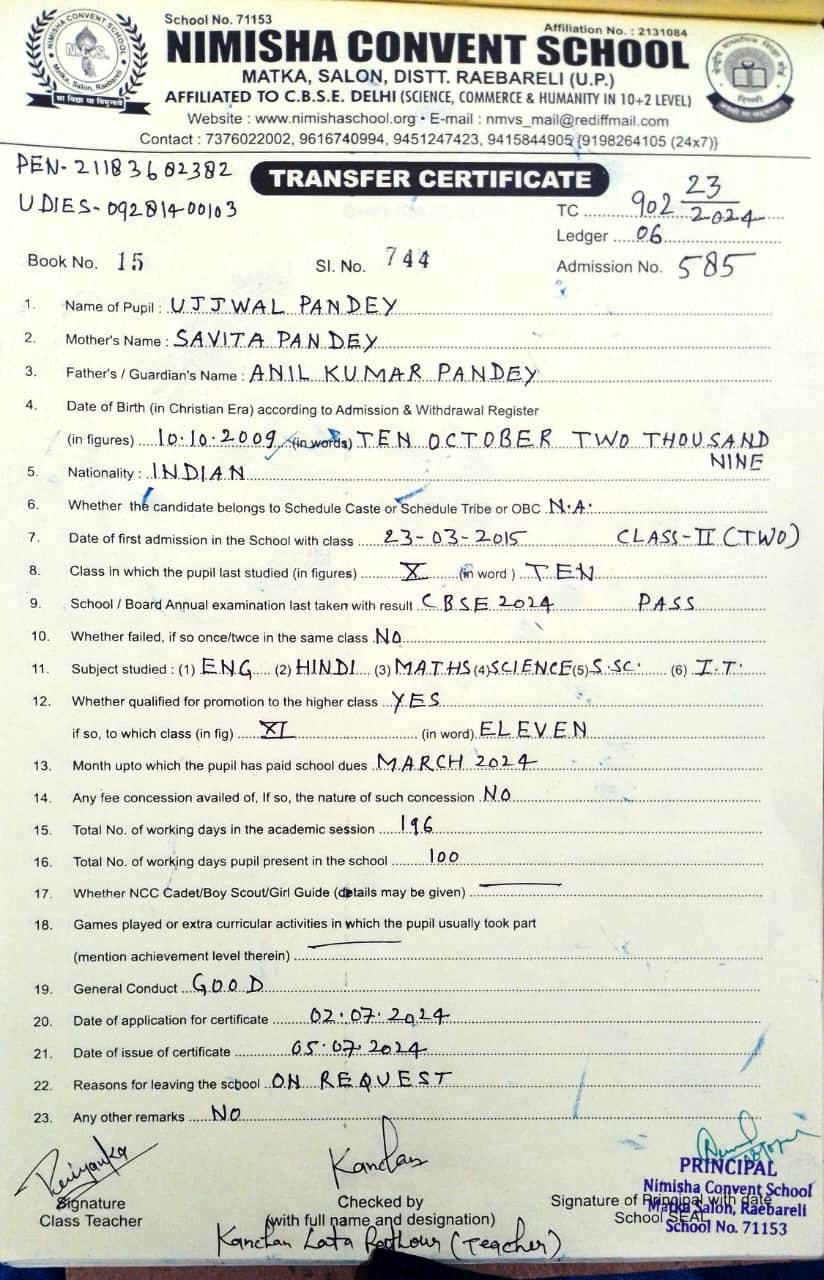 NIMISHA CONVENT SCHOOL
N.C.S.
Matka, Salon, Raebareli
सा विद्या या विमुक्तये
School No. 71153
Affiliation No. : 2131084
NIMISHA CONVENT SCHOOL
MATKA, SALON, DISTT. RAEBARELI (U.P.)
AFFILIATED TO C.B.S.E. DELHI (SCIENCE, COMMERCE & HUMANITY IN 10+2 LEVEL)
Website : www.nimishaschool.org • E-mail : nmvs_mail@rediffmail.com
Contact : 7376022002, 9616740994, 9451247423, 9415844905 {9198264105 (24x7)}
PEN-21183602382
TRANSFER CERTIFICATE
UDIES-09281400103
TC 902 23/2024
Ledger 06
Book No. 15 Sl. No. 744 Admission No. 585
1. Name of Pupil : UJJWAL PANDEY
2. Mother's Name : SAVITA PANDEY
3. Father's / Guardian's Name : ANIL KUMAR PANDEY
4. Date of Birth (in Christian Era) according to Admission & Withdrawal Register
(in figures) 10.10.2009 (in words) TEN OCTOBER TWO THOUSAND
NINE
5. Nationality : INDIAN
6. Whether the candidate belongs to Schedule Caste or Schedule Tribe or OBC N.A.
7. Date of first admission in the School with class 23-03-2015 CLASS-II (TWO)
8. Class in which the pupil last studied (in figures) X (in word ) TEN
9. School / Board Annual examination last taken with result CBSE 2024 PASS
10. Whether failed, if so once/twce in the same class NO
11. Subject studied : (1) ENG (2) HINDI (3) MATHS (4) SCIENCE (5) S.SC. (6) I.T.
12. Whether qualified for promotion to the higher class YES
if so, to which class (in fig) XI (in word) ELEVEN
13. Month upto which the pupil has paid school dues MARCH 2024
14. Any fee concession availed of, If so, the nature of such concession NO
15. Total No. of working days in the academic session 196
16. Total No. of working days pupil present in the school 100
17. Whether NCC Cadet/Boy Scout/Girl Guide (details may be given)
18. Games played or extra curricular activities in which the pupil usually took part
(mention achievement level therein)
19. General Conduct GOOD
20. Date of application for certificate 02.07.2024
21. Date of issue of certificate 05.07.2024
22. Reasons for leaving the school ON REQUEST
23. Any other remarks NO
Priyanka
Kanchan
Signature
Class Teacher
Checked by
(with full name and designation)
Kanchan Lata Rathour (Teacher)
Signature of Principal with date
School SEAL
PRINCIPAL
Nimisha Convent School
Matka Salon, Raebareli
School No. 71153